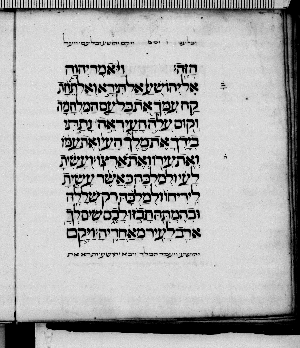 ויקם יהושע וכל עם
הזה ויאמר יהוה
אל יהושע אל תירא ואל תחת
קח עמך את כל עם המלחמה
וקום עלה העי ראה נתתי
בידך את מלך העי ואת עמו
ואת עירו ואת ארצו ועשית
לעי ולמלכה כאשר עשית
ליריחו ולמלכה רק שללה
ובהמתה תבזו לכם שים לך
ארב לעיר מאחריה ויקם